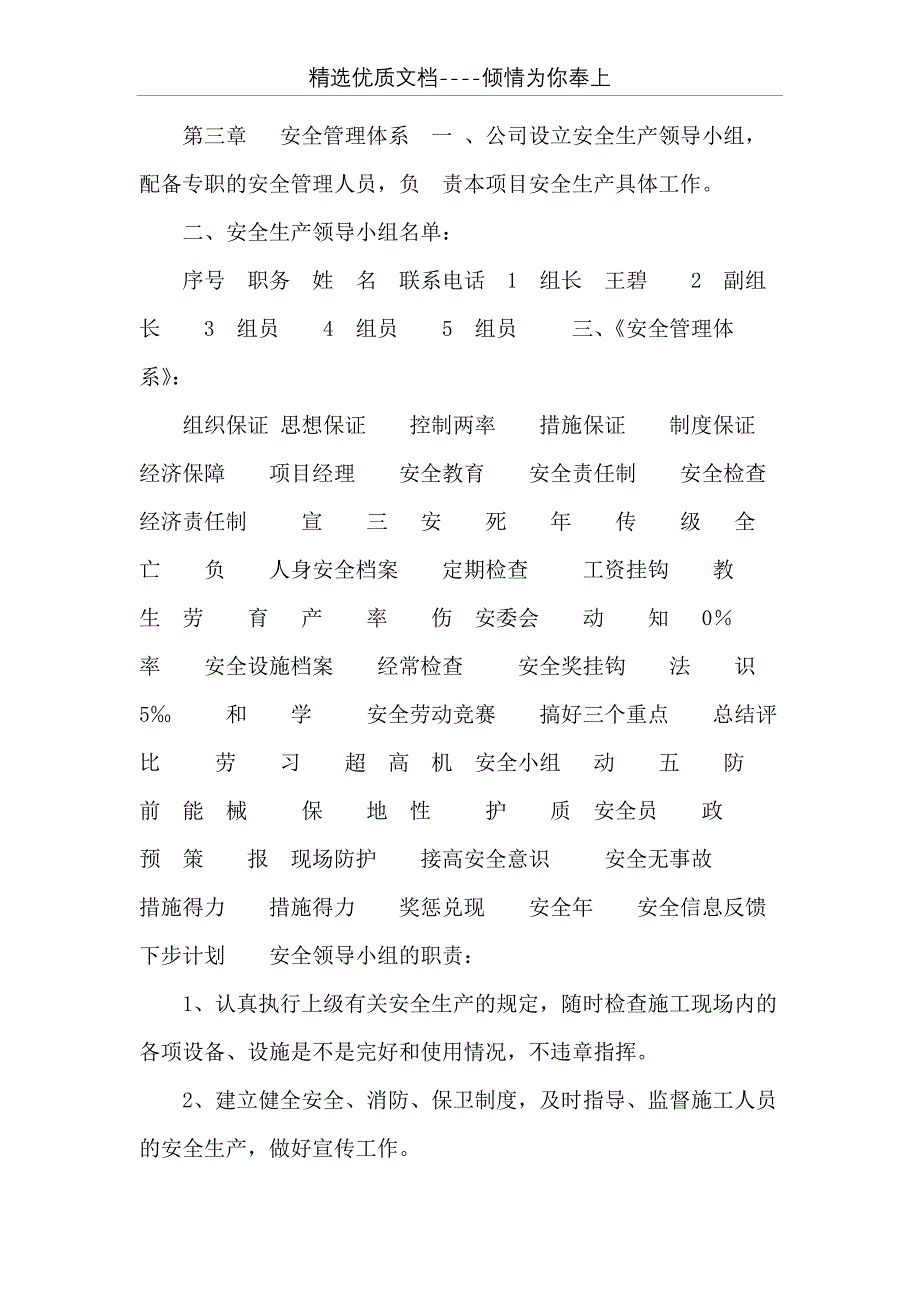 精选优质文档----倾情为你奉上
第三章 安全管理体系 一 、公司设立安全生产领导小组，
配备专职的安全管理人员，负 责本项目安全生产具体工作。
二、安全生产领导小组名单：
序号 职务 姓 名 联系电话 1 组长 王碧 2 副组
长 3 组员 4 组员 5 组员 三、《安全管理体
系》：
组织保证 思想保证 控制两率 措施保证 制度保证
经济保障 项目经理 安全教育 安全责任制 安全检查
经济责任制 宣 三 安 死 年 传 级 全
亡 负 人身安全档案 定期检查 工资挂钩 教
生 劳 育 产 率 伤 安委会 动 知 0%
率 安全设施档案 经常检查 安全奖挂钩 法 识
5‰ 和 学 安全劳动竞赛 搞好三个重点 总结评
比 劳 习 超 高 机 安全小组 动 五 防
前 能 械 保 地 性 护 质 安全员 政
预 策 报 现场防护 接高安全意识 安全无事故
措施得力 措施得力 奖惩兑现 安全年 安全信息反馈
下步计划 安全领导小组的职责：
1、认真执行上级有关安全生产的规定，随时检查施工现场内的
各项设备、设施是不是完好和使用情况，不违章指挥。
2、建立健全安全、消防、保卫制度，及时指导、监督施工人员
的安全生产，做好宣传工作。